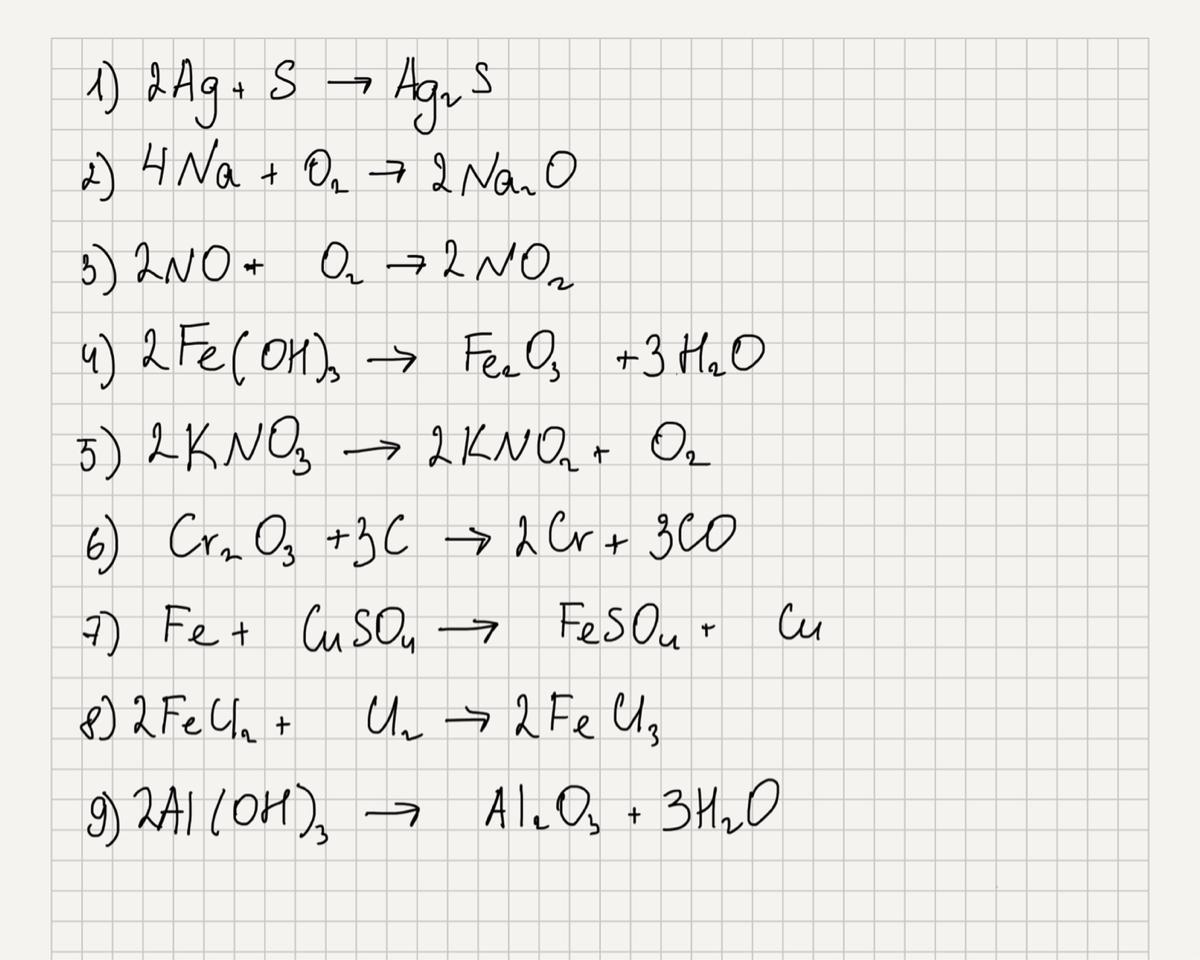 1) 2Ag + S → Ag₂S
2) 4Na + O₂ → 2Na₂O
3) 2NO + O₂ → 2NO₂
4) 2Fe(OH)₃ → Fe₂O₃ + 3H₂O
5) 2KNO₃ → 2KNO₂ + O₂
6) Cr₂O₃ + 3C → 2Cr + 3CO
7) Fe + CuSO₄ → FeSO₄ + Cu
8) 2FeCl₂ + Cl₂ → 2FeCl₃
9) 2Al(OH)₃ → Al₂O₃ + 3H₂O